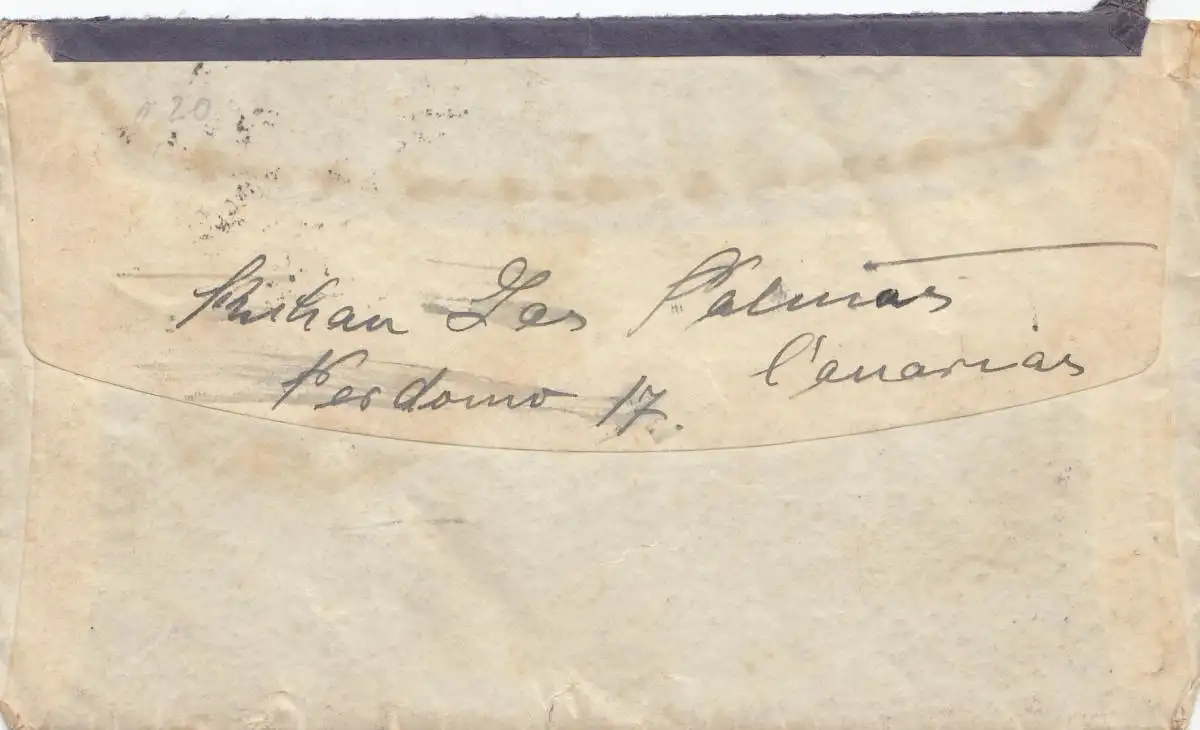 20
Las Palmas
Canarias
Perdomo 17.